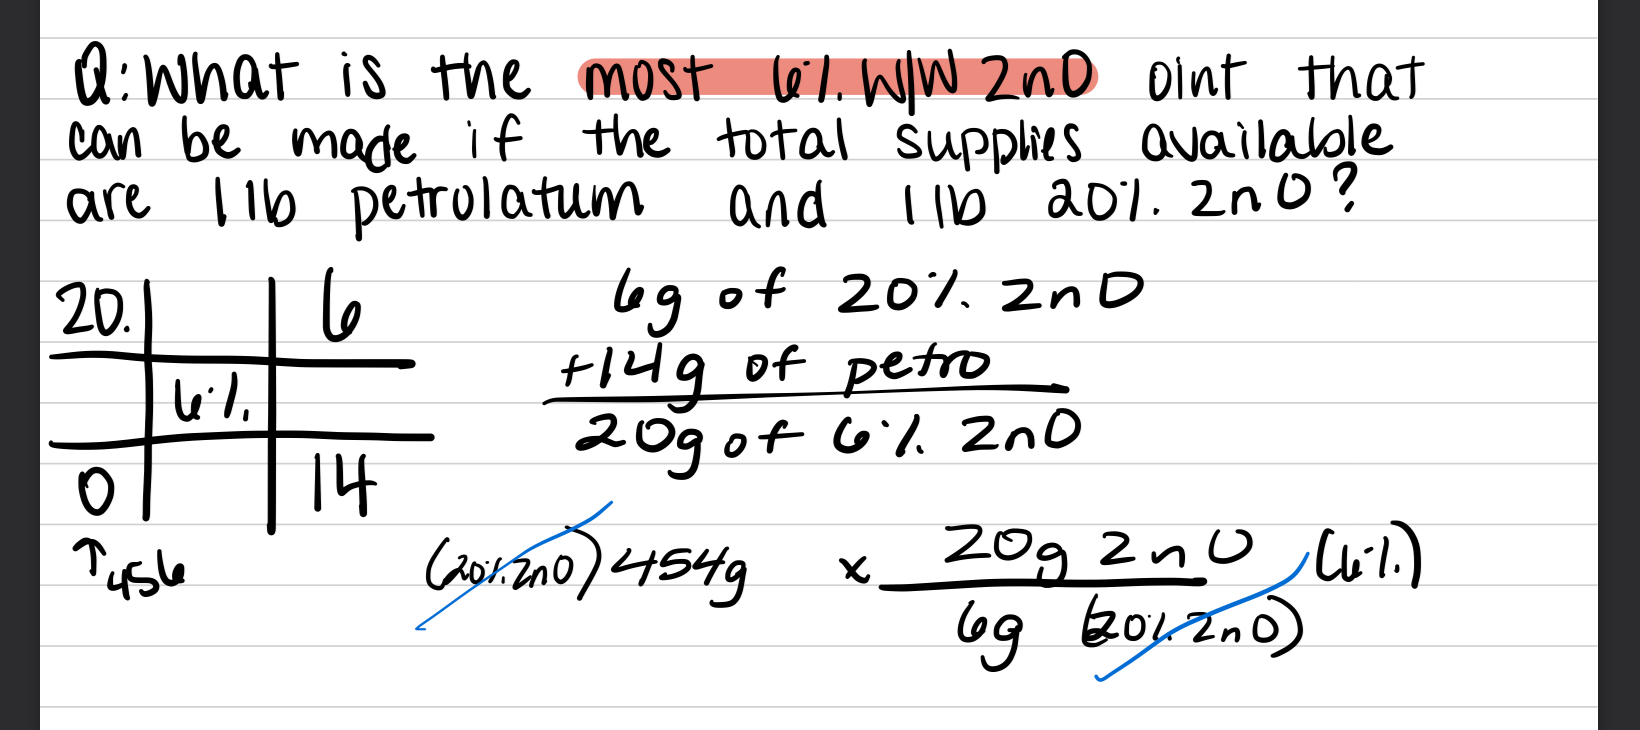 Q: What is the most 6% W/W ZnO oint that
can be made if the total supplies available
are 1 lb petrolatum and 1 lb 20% ZnO?
20. 6
6%
0 14
↑456
6g of 20% ZnO
+14g of petro
20g of 6% ZnO
(20% ZnO) 454g x 20g ZnO (6%)
6g (20% ZnO)